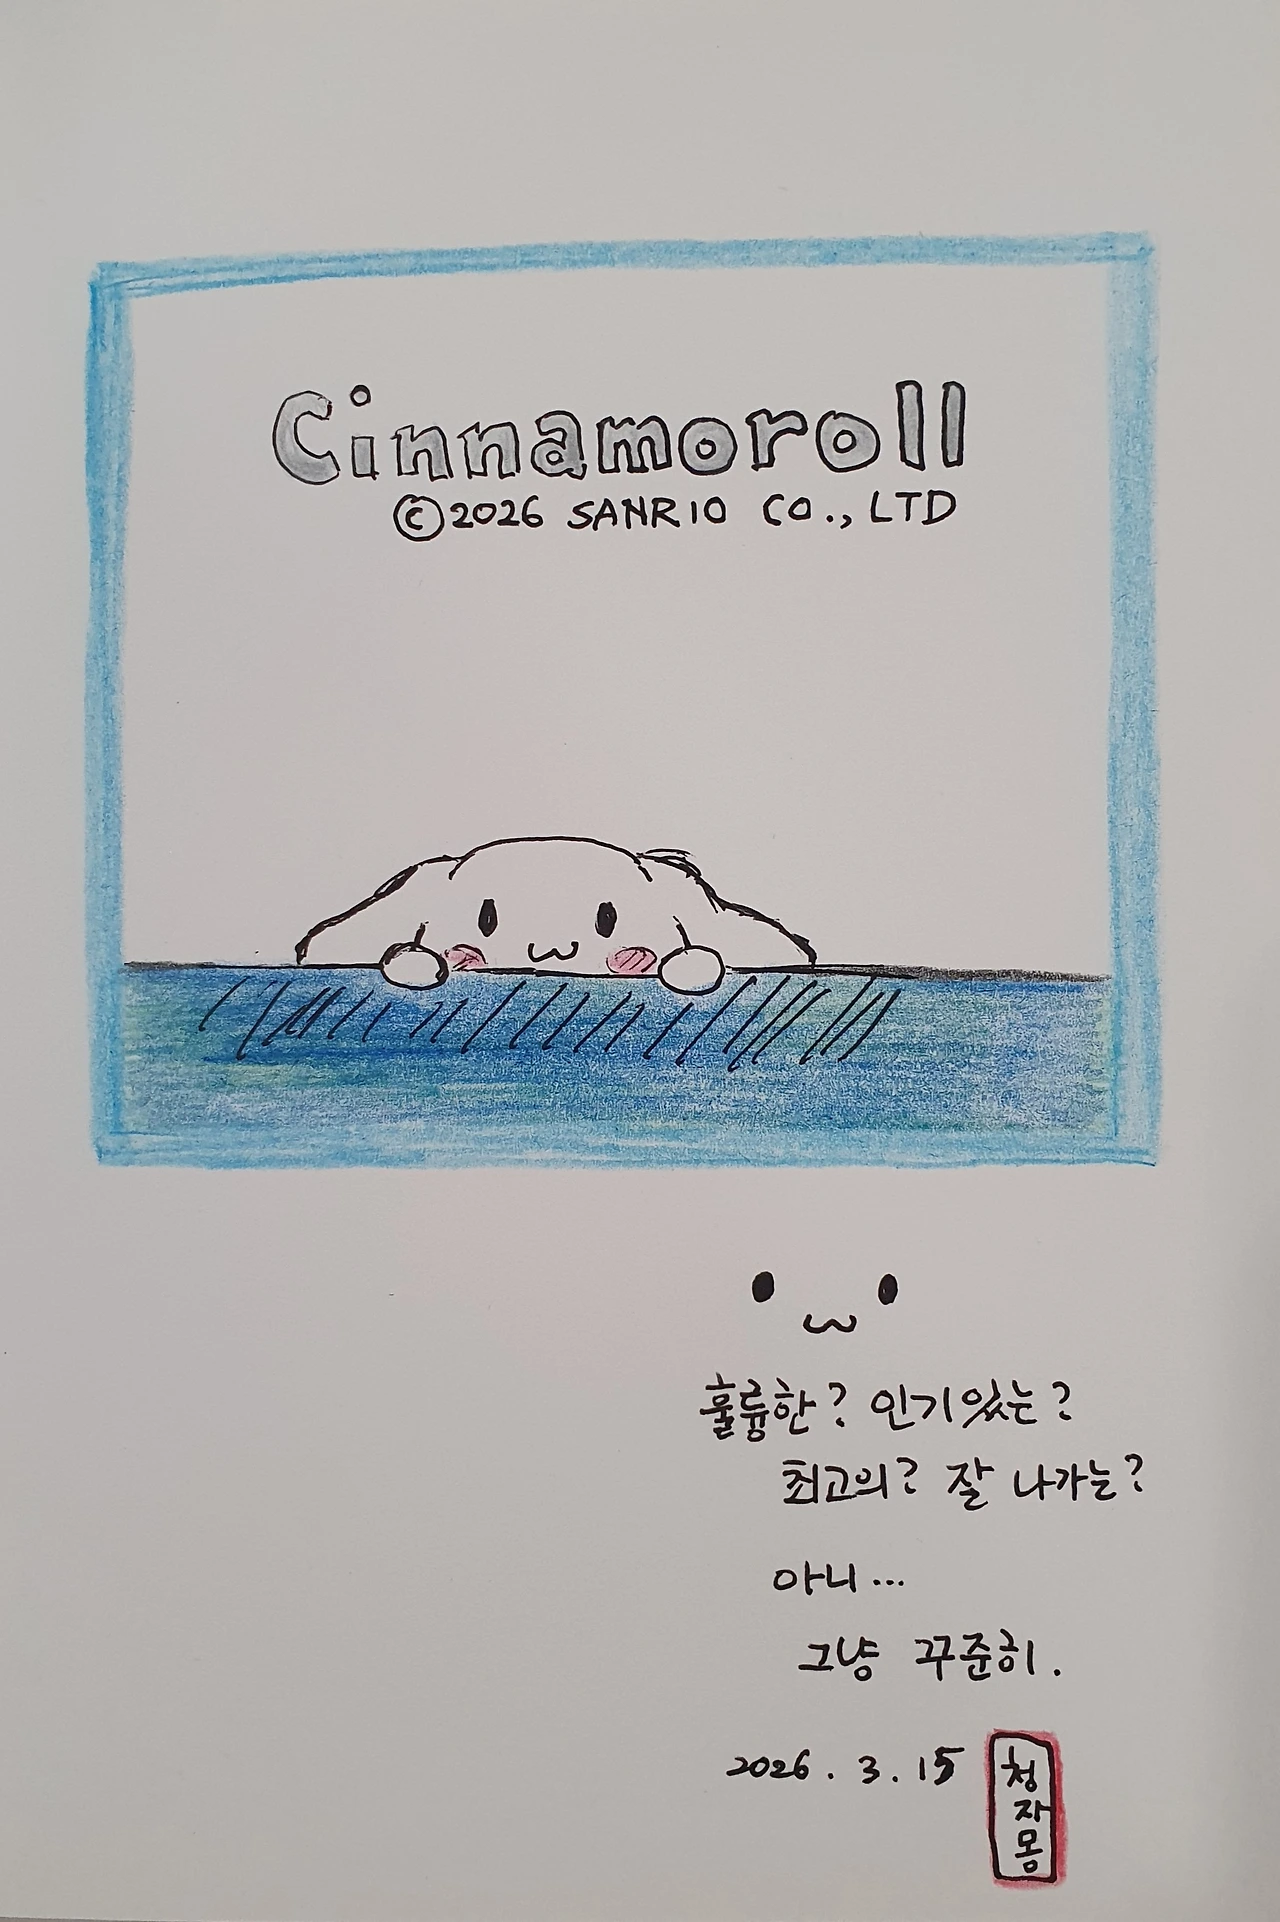 Cinnamoroll
©2026 SANRIO CO., LTD
훌륭한? 인기있는?
최고의? 잘 나가는?
아니...
그냥 꾸준히.
2026. 3. 15
청자몽